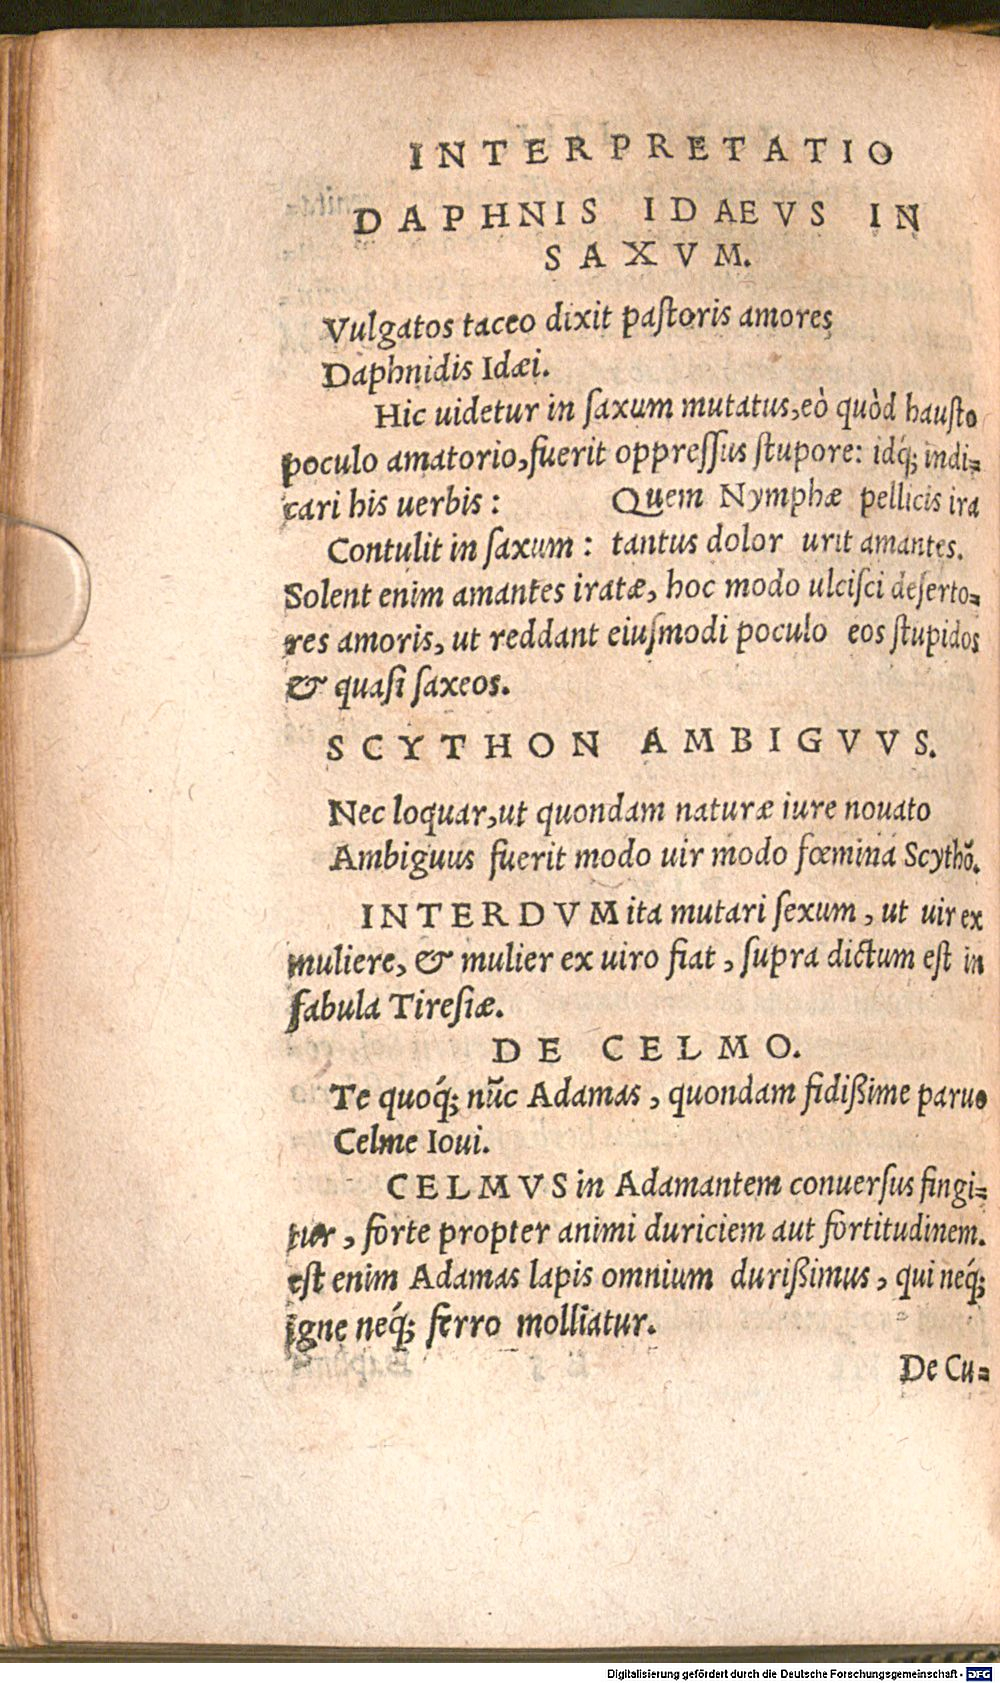 INTERPRETATIO
DAPHNIS IDAEVS IN
SAXVM.
Vulgatos taceo dixit paſtoris amores
Daphnidis Idæi.
Hic uidetur in ſaxum mutatus,eò quòd hauſto
poculo amatorio,fuerit oppreſſus ſtupore: idq́; indi=
cari his uerbis: Quem Nymphæ pellicis ira
Contulit in ſaxum: tantus dolor urit amantes.
Solent enim amantes iratæ, hoc modo ulciſci deſerto=
res amoris, ut reddant eiuſmodi poculo eos ſtupidos
& quaſi ſaxeos.
SCYTHON AMBIGVVS.
Nec loquar,ut quondam naturæ iure nouato
Ambiguus fuerit modo uir modo fœmina Scythõ.
INTERDVM ita mutari ſexum, ut uir ex
muliere, & mulier ex uiro fiat, ſupra dictum eſt in
fabula Tireſiæ.
DE CELMO.
Te quoq́; nũc Adamas, quondam fidißime paruo
Celme Ioui.
CELMVS in Adamantem conuerſus fingi=
tur, forte propter animi duriciem aut fortitudinem.
eſt enim Adamas lapis omnium durißimus, qui neq́;
igne neq́; ferro molliatur.
De Cu=
Digitalisierung gefördert durch die Deutsche Forschungsgemeinschaft - DFG